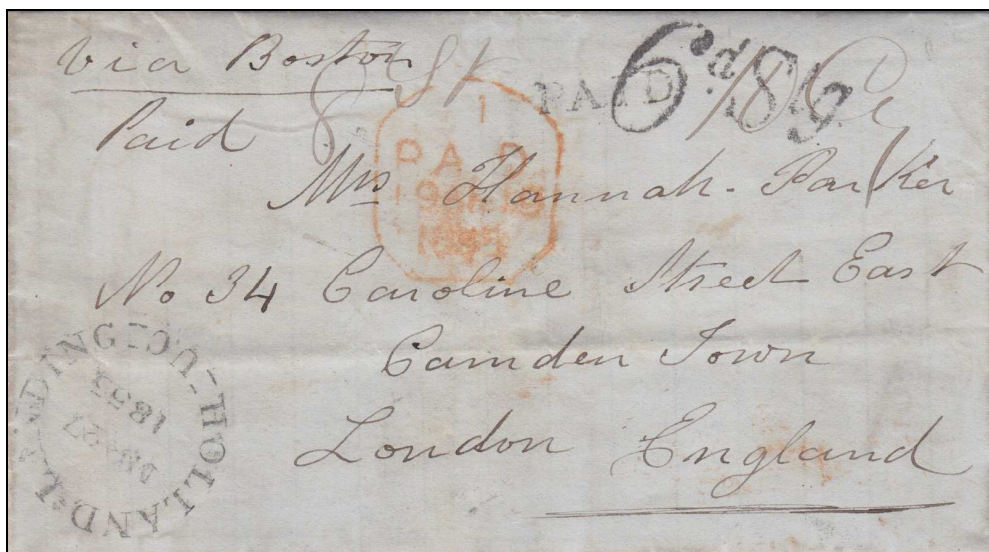 via Boston
Paid
PAID
6d Stg
PAID
Mrs Hannah. Parker
No 34 Caroline Street East
Camden Town
London England
HOLLAND
1853